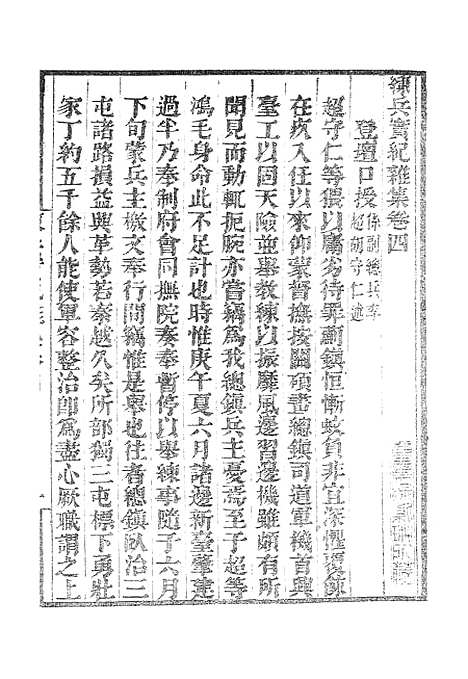 練兵實紀雜集卷四
登壇口授 係副總兵李超胡守仁述
超守仁等猥以庸劣待罪副鎮恒慚蚊負非宜深懼覆餗
在疚入任以來仰蒙督撫按關碩畫總鎮司道軍機首興
臺工以固天險並舉教練以振靡風邊習邊機雖頗有所
聞見而動輒扼腕亦嘗竊爲我總鎮兵主憂焉至于超等
鴻毛身命此不足計也時惟庚午夏六月諸邊新臺肇建
過半乃奉制府會同撫院奏奉暫停以舉練事隨于六月
下旬蒙兵主檄文奉行間竊惟是舉也往者總鎮臥治三
屯諸路損益與革勢若秦越久矣所部獨三屯標下勇壯
家丁約五千餘人能使軍容整治即爲盡心厥職謂之上